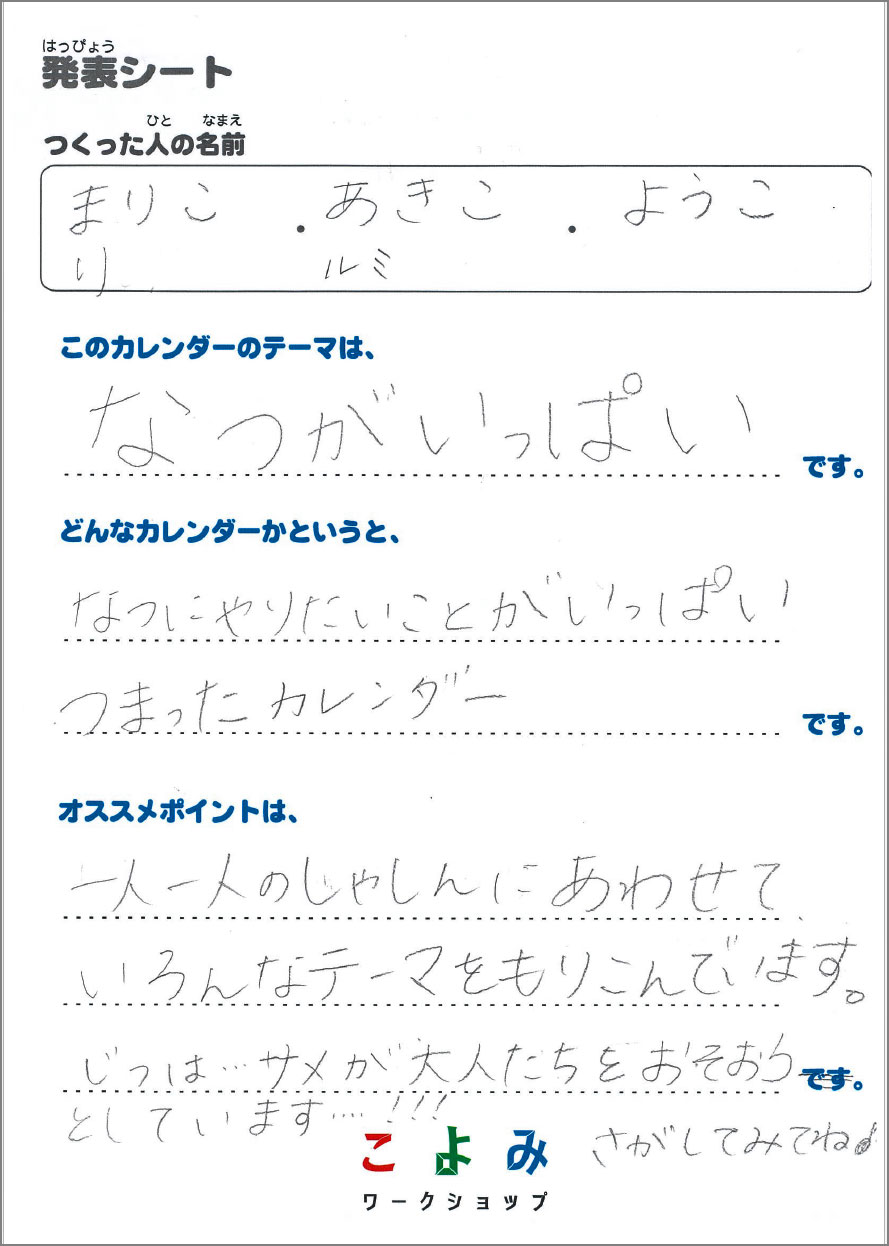 はっぴょう
発表シート
ひと なまえ
つくった人の名前
まりこ ・ あきこ ・ ようこ
り ルミ
このカレンダーのテーマは、
なつがいっぱい
です。
どんなカレンダーかというと、
なつにやりたいことがいっぱい
つまったカレンダー
です。
オススメポイントは、
一人一人のしゃしんにあわせて
いろんなテーマをもりこんでいます。
じつは…サメが大人たちをおそおう
です。
としています….!!!
さがしてみてね♪
こよみ
ワークショップ